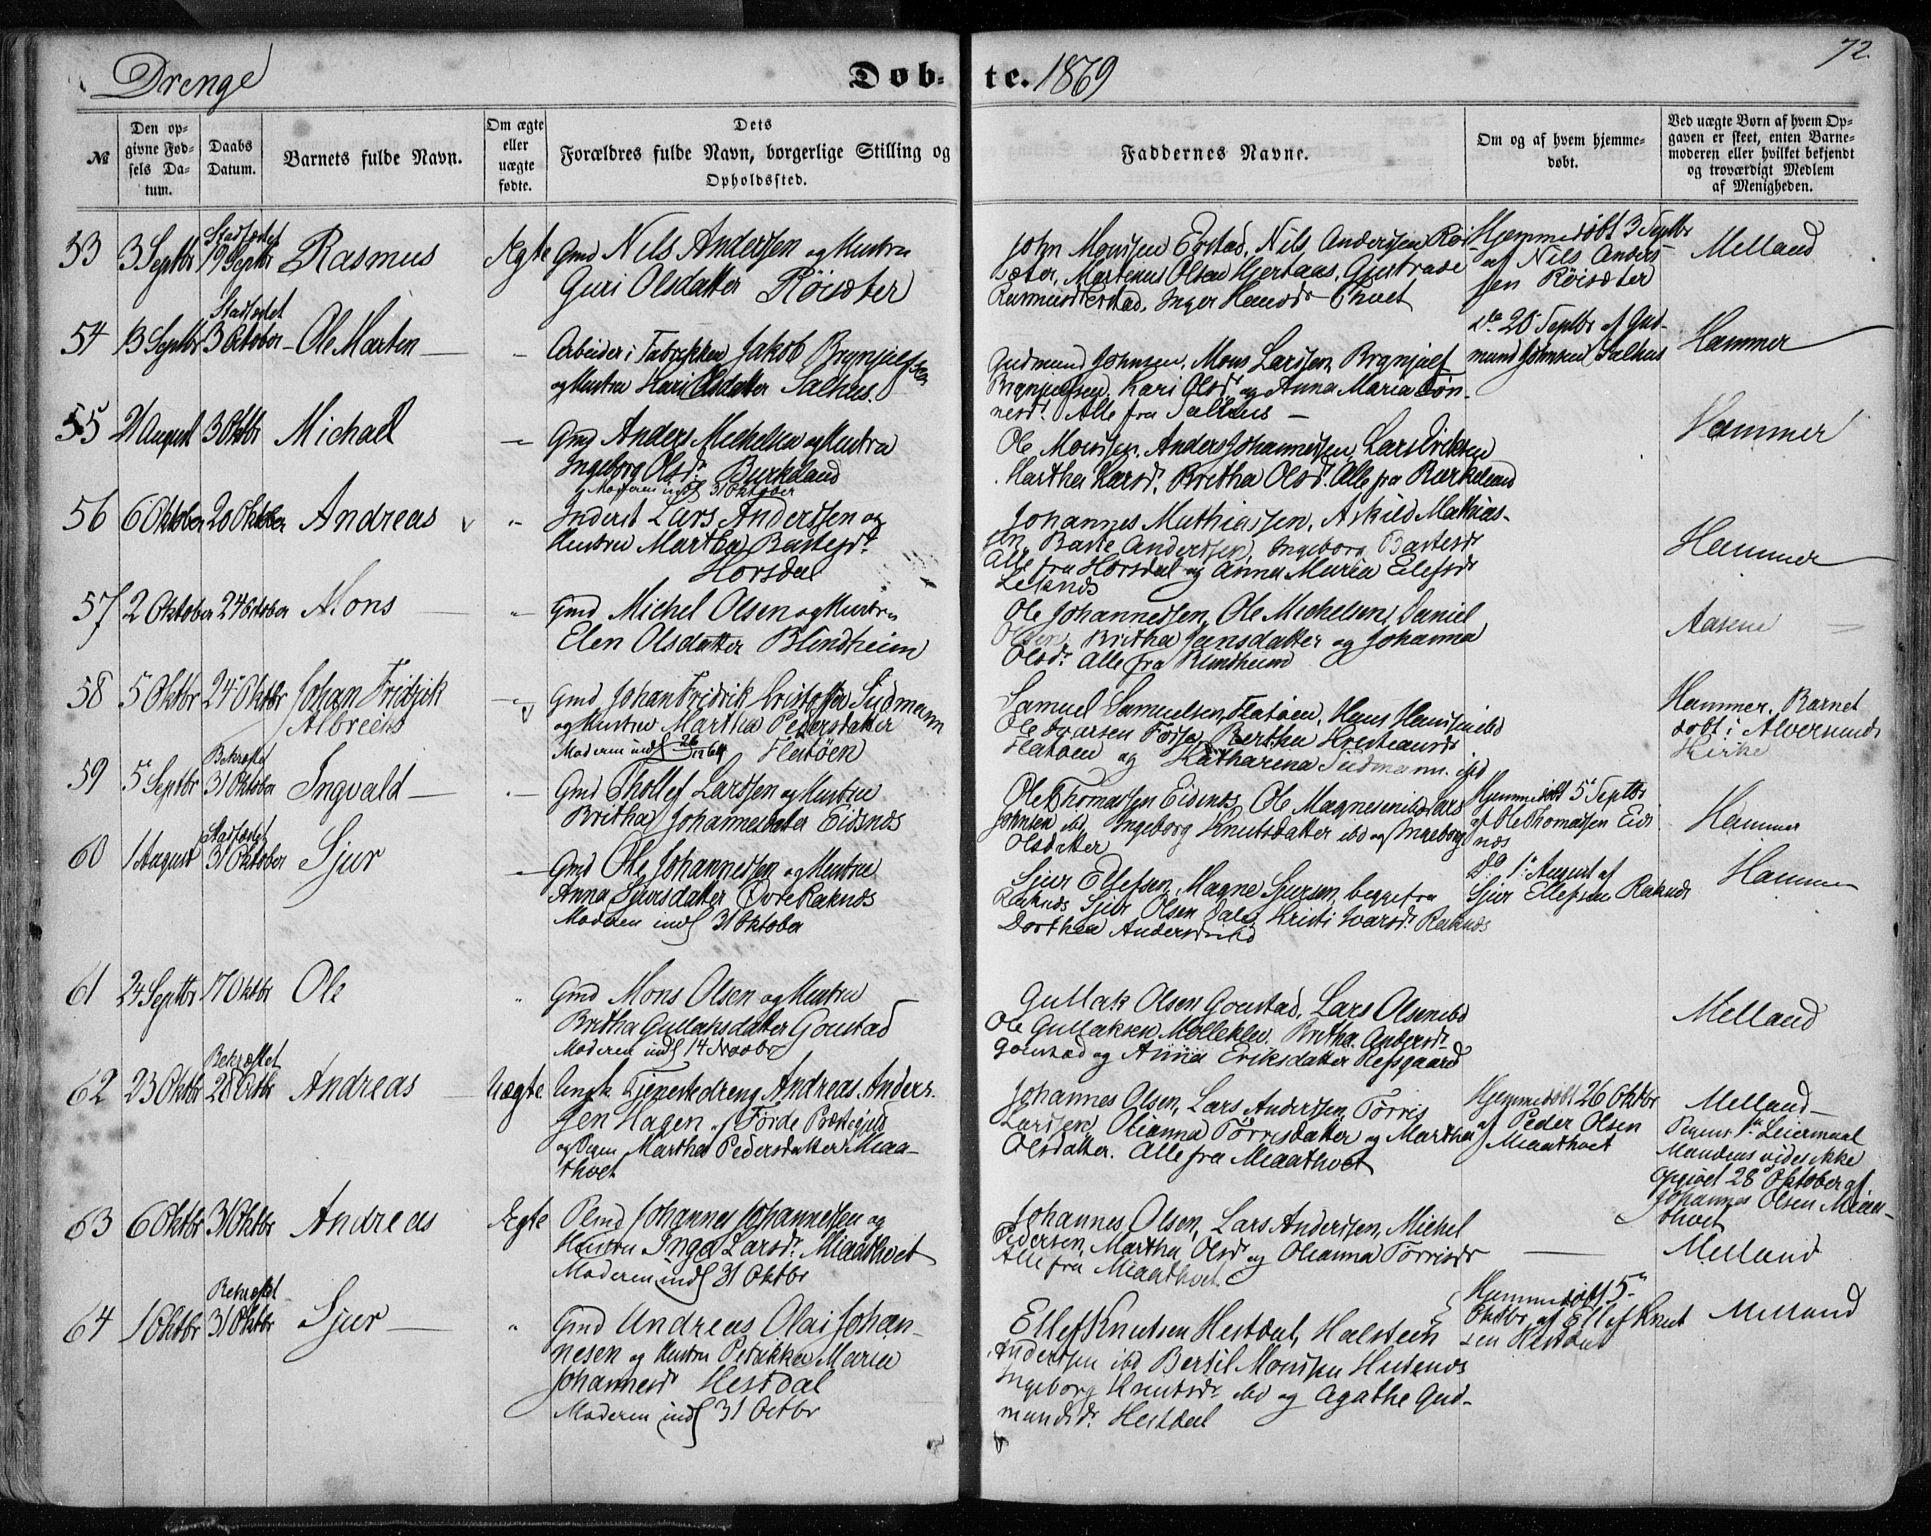 72.
Drenge
Døb-te. 1869
№
Den op-
givne Fød-
sels Da-
tum.
Daabs
Datum.
Barnets fulde Navn.
Om ægte
eller
uægte
fødte.
Dets
Forældres fulde Navn, borgerlige Stilling og
Opholdssted.
Faddernes Navne.
Om og af hvem hjemme-
døbt.
Ved uægte Børn af hvem Op-
gaven er skeet, enten Barne-
moderen eller hvilket bekjendt
og troværdigt Medlem
af Menigheden.
53 3 Septbr Stadfæstet 19 Septbr Rasmus Ægte
Gmd Nils Anderssen og Hustru
Guri Olsdatter Röisæter
John Monssen Erstad, Nils Anderssen Röi-
sæter, Martinus Olsen Hjertaas,
Inger Hansdr
Hjemmedøbt 3 Septbr
af Nils Anders-
sen Röisæter
Melland
54 13 Septbr Stadfæstet 3 Oktober Ole Marten "
Arbeider i Fabrikken Jakob Brynjulfsen
og Hustru Kari Olsdatter Salhus.
Gudmund Johnsen, Mons Larssen, Brynjulf
Brynjulfsen, Kari Olsdr og Anna Maria Tön-
nesdr. Alle fra Salhus
Do 20 Septbr af Gud-
mund Johnsen Salhus
Hammer
55 21 August 3 Oktbr Michael
Gmd Anders Michelsen og Hustru
Ingeborg Olsdr Burkeland
Moderen inds 31 Oktober
Ole Monssen, Anders Johannessen, Lars Eriksen
Martha Larsdr. Britha Olsdr. Alle fra Burkeland
Hammer
56 6 Oktober 20 Oktober Andreas "
Inderst Lars Anderssen og
Hustru Martha Bastesdr.
Horsdal
Johannes Mathiassen, Askild Mathias-
sen, Baste Anderssen, Ingeborg Bastesdr
Alle fra Horsdal og Anna Maria Elefsdr
Hammer
57 2 Oktober 24 Oktober Mons "
Gmd Michel Olsen og Hustru
Elen Olsdatter Blindheim
Ole Johannessen, Ole Michelsen, Daniel
Olsen, Britha Jansdatter og Johanna
Olsdr. Alle fra Blindheim
Aasene
58 5 Oktbr 24 Oktbr Johan Fridrik
Albreckt
Gmd Johan Fridrik Kristoffer Sudmann
og Hustru Martha Pedersdatter
Moderen inds Flatöen
Samuel Samuelsen Flatöen, Hans Hanssen ibd
Flatöen og Katharina Sudmann. ibd
Hammer, Barnet
døbt i Alversunds
Kirke
59 5 Septbr Bekræftet 31 Oktober Ingvald
Gmd Thollef Larssen og Hustru
Britha Johannesdatter Eidsnæs
Ole Thomassen Eidsnæs, Ole Magnesen ibd, Lars
Johnsen ibd Ingeborg Knutsdatter ibd og Ingeborg
Olsdatter
Hjemmedøbt 5 Septbr
af Ole Thomassen Eids
næs
Hammer
60 1 August Stadfæstet 31 Oktober Sjur
Gmd Ole Johannessen og Hustru
Anna Sjursdatter Övre Raknæs
Moderen inds 31 Oktober
Sjur Ellefsen, Magne Sjursen, begge fra
Raknæs Sjur Olsen Kristi Ivarsdr. Raknæs
Dorthea Andersdr ibd
Do 1 August af
Sjur Ellefsen Raknæs
Hammer
61 24 Septbr 17 Oktbr Ole "
Gmd Mons Olsen og Hustru
Britha Gullaksdatter Gonstad
Moderen inds 14 Novbr
Gullak Olsen Gonstad, Lars Olsen ibd
Ole Gullaksen Britha Andersdr
Gonstad og Anna Eriksdatter Refsgaard
Melland
62 23 Oktbr Bekræftet 28 Octbr Andreas Uægte
Ungk. Tjenestedreng Andreas Anders-
sen Hagen af Förde Præstegjeld
og Pigen Martha Pedersdatter Miaa-
thvet
Johannes Olsen, Lars Anderssen, Törris
Larssen, Olianna Törrisdatter og Martha
Olsdatter. Alle fra Miaathvet
Hjemmedøbt 26 Oktbr
af Peder Olsen
Miaathvet
Melland
Pigens 1ste Leiermaal
Mandens vides ikke
Opgivet 28 Oktober af
Johannes Olsen Miaa-
thvet
63 6 Oktbr 31 Oktbr Andreas Ægte
Plmd Johannes Johannessen og
Hustru Inga Larsdr. Miaathvet
Moderen inds 31 Oktbr
Johannes Olsen, Lars Anderssen, Michel
Pedersen, Martha Olsdr og Olianna Törrisdr
Alle fra Miaathvet.
Melland
64 1 Oktbr Bekræftet 31 Oktbr Sjur "
Gmd Andreas Olai Johan-
nesen og Hustru Petrikka Maria
Johannesdr Hestdal
Moderen inds 31 Octbr
Ellef Knutsen Hestdal, Halsteen
Anderssen ibd Bertil Monssen Husenæs
Ingeborg Knutsdr. ibd og Agathe Gud-
mundsdr. Hestdal
Hjemmedøbt 5
Oktbr af Ellef Knut
sen Hestdal
Melland